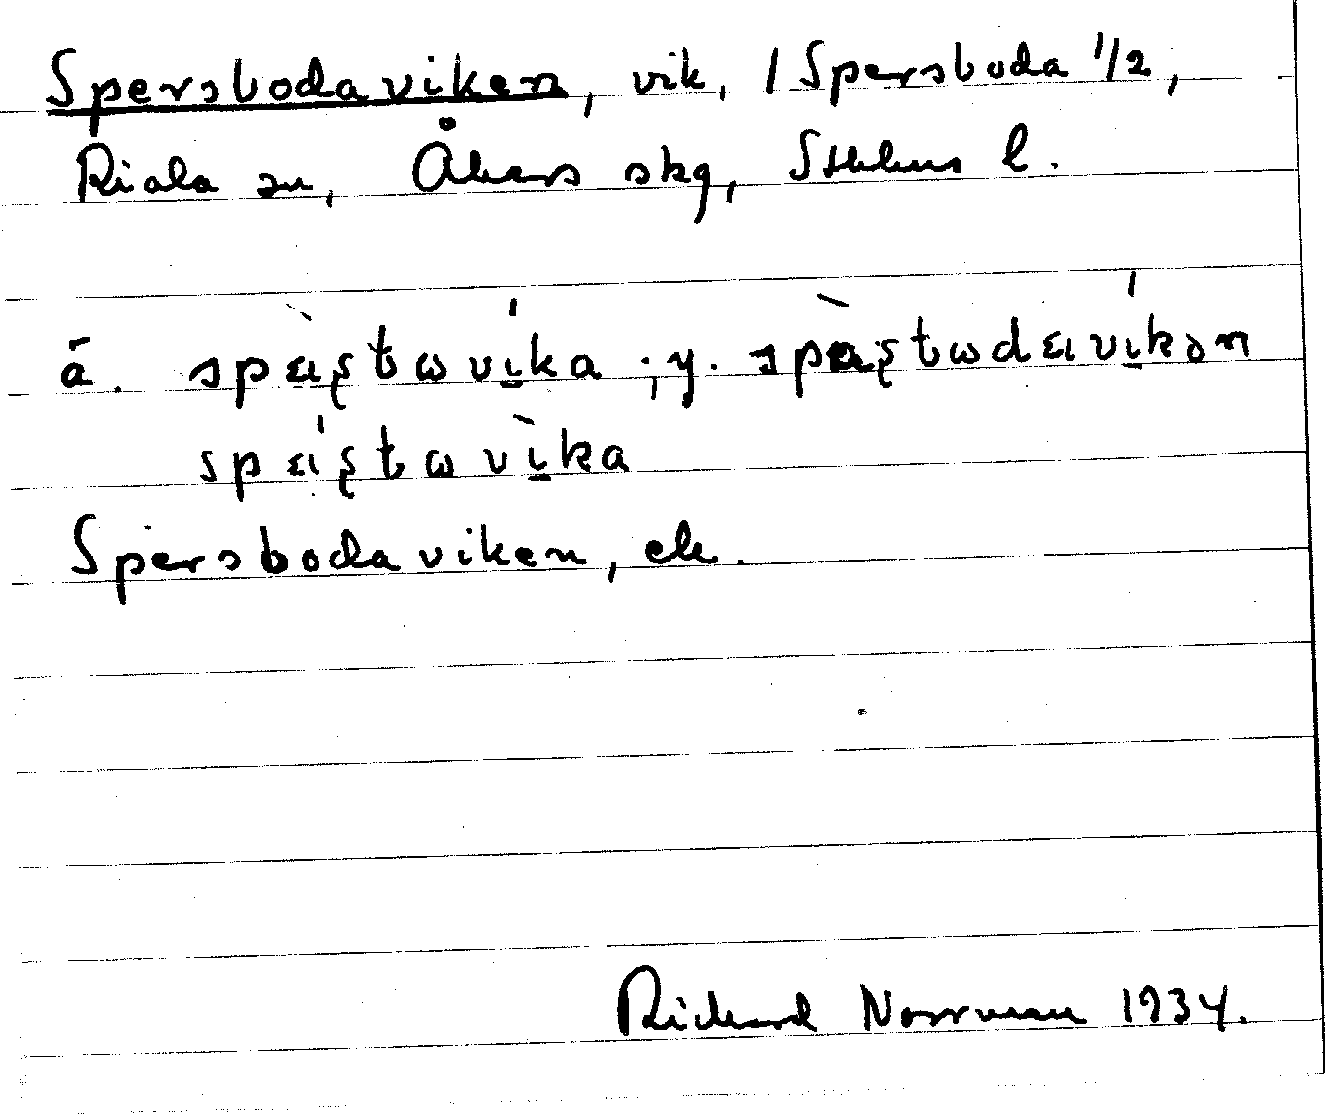 Spersbodaviken, vik, / Spersboda 1/2,
Riala sn, Åkers skg, Sthlms l.
ä. spèʂtωvíka ; y. spèʂtωdavíkən
spéʂtωvìka
Spersbodaviken, ek.
Rickard Norrman 1934.